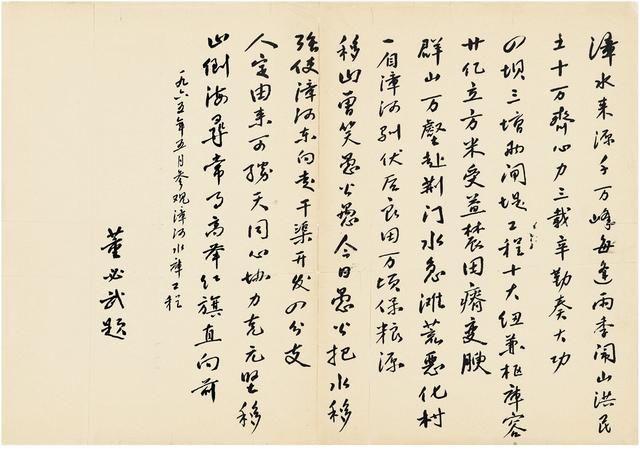 漳水来源千万峰每逢雨季闹山洪民
工十万齐心力三载辛勤奏大功
四坝三闸堤工程十大纽兼枢库容
廿亿立方米受益農田瘠变腴
群山万壑赴荆门水急滩荒恶化村
一自漳河驯伏后良田万顷保粮源
移山曾笑愚公愚今日愚公把水移
强使漳河东向走干渠开发四分支
人定由来可胜天同心协力克坚移
山倒海寻常事高举红旗直向前
一九六五年五月参观漳河水库工程
董必武题